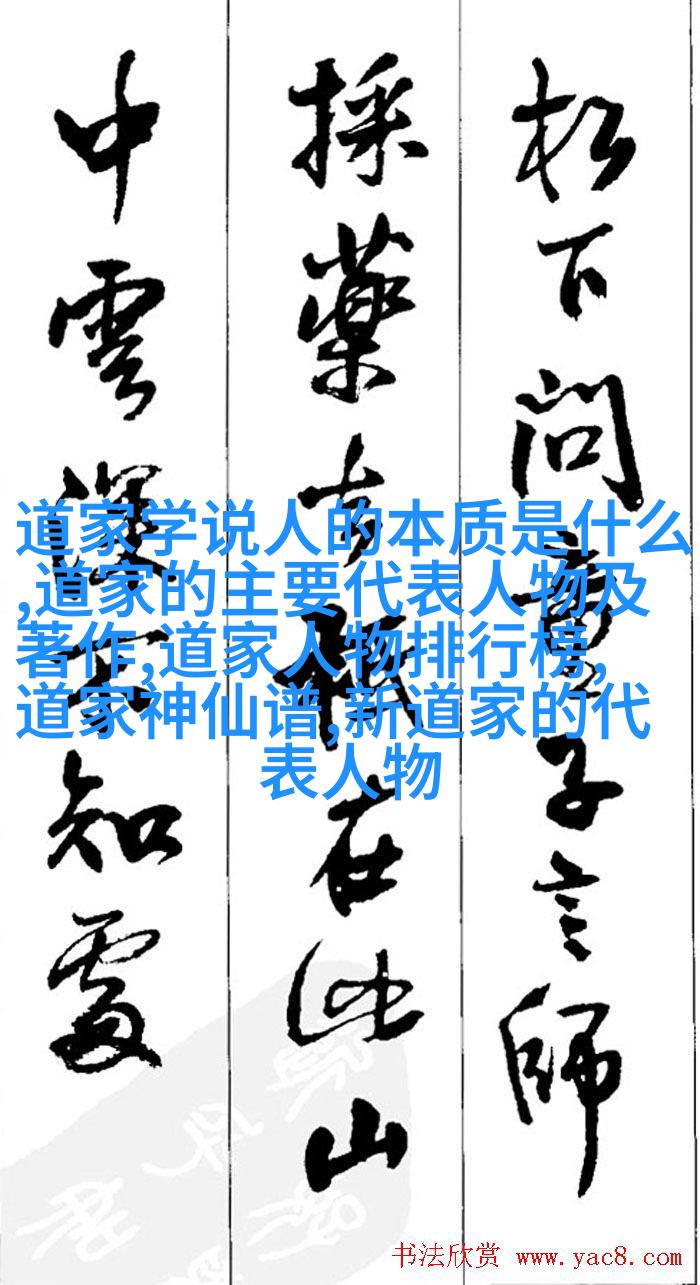 松下问童子言師
採藥去祇在此山
中雲深不知處
道家学说人的本质是什么
,道家的主要代表人物及
著作,道家人物排行榜,
道家神仙谱,新道家的代
表人物
书法欣赏 www.yac8.com